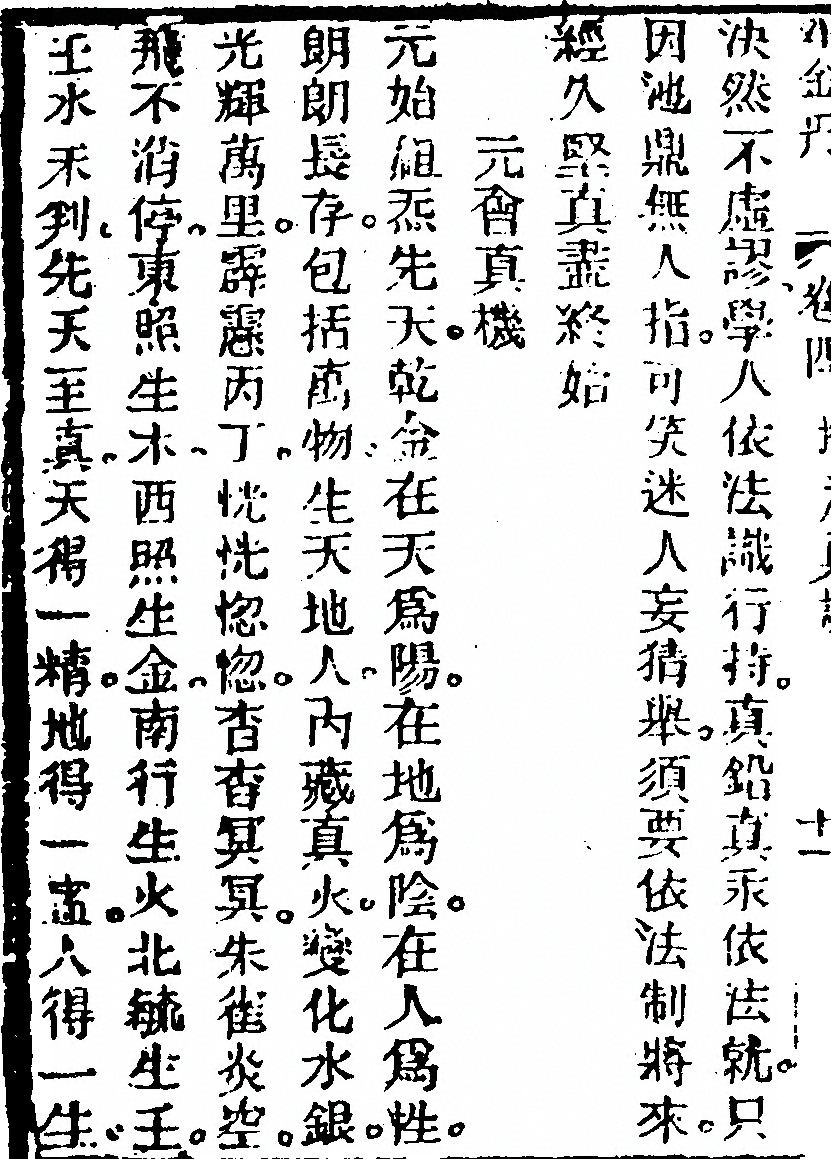 金丹 卷四 十一
決然不虛謬學人依法識行持。真鉛真汞依法就。只
因池鼎無人指。可笑迷人妄猜舉。須要依法制將來。
經久堅真盡終始
元會真機
元始祖炁先天。乾金在天為陽。在地為陰。在人為性。
朗朗長存。包括萬物。生天地人。內藏真火。變化水銀。
光輝萬里。霹靂丙丁。恍恍惚惚。杳杳冥冥。朱雀炎空。
飛不消停。東照生木。西照生金。南行生火。北毓生壬。
壬水未判。先天至真。天得一精。地得一 。人得一生。